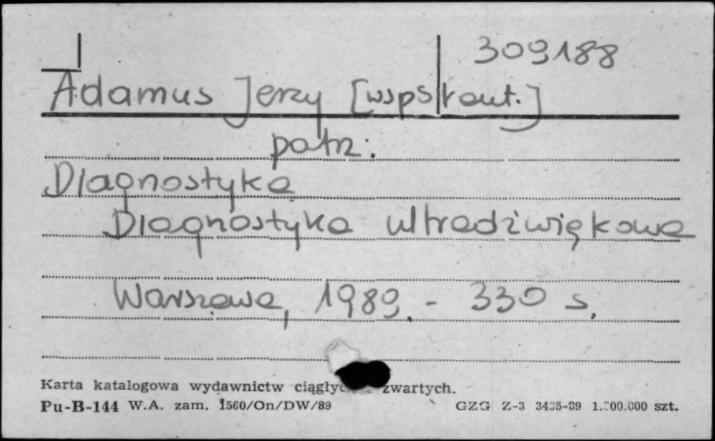 309188
Adamus Jerzy [wspłaut.]
patrz:
Diagnostyka
Diagnostyka ultradźwiękowa
Warszawa, 1989. - 330 s.
Karta katalogowa wydawnictw zwartych.
Pu-B-144 W.A. zam. 1560/On/DW/89 GZG Z-3 3435-89 szt.